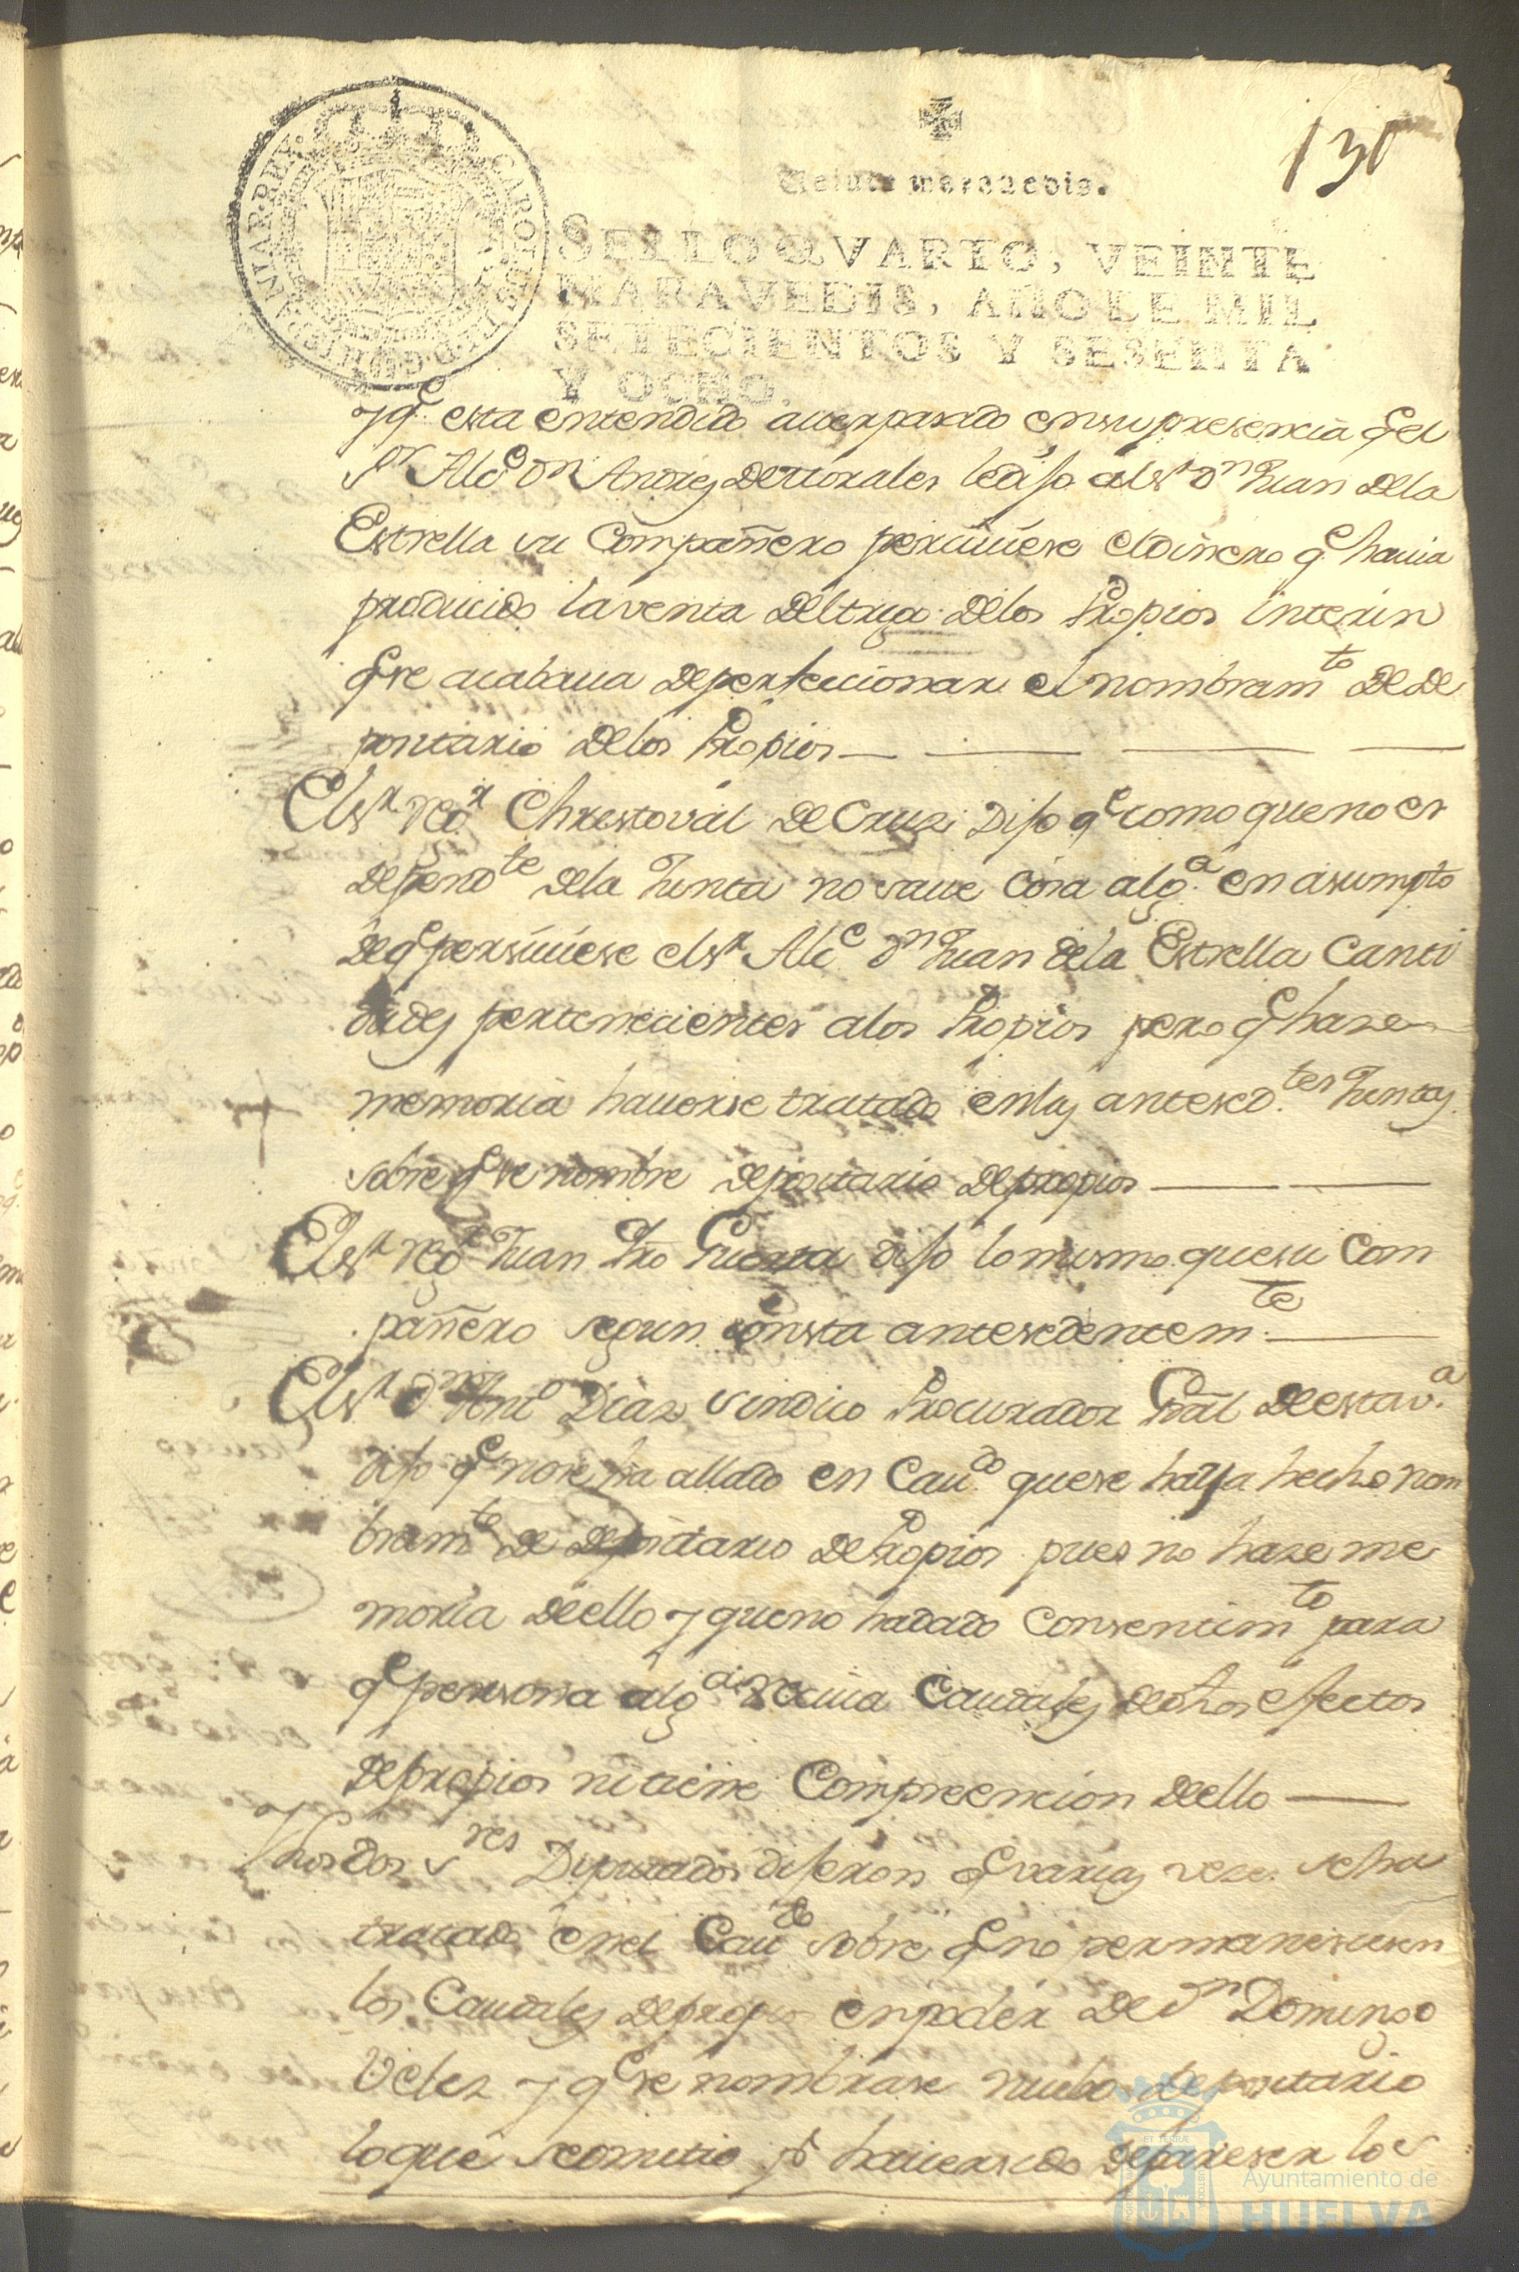 130
Veinte maravedis.
SELLO QVARTO, VEINTE
MARAVEDIS, AÑO DE MIL
SETECIENTOS Y SESENTA
Y OCHO.
y q.e esta entendido auer pasado en su presencia q.e el
S.or Alc.e D.n Andres de Morales le dijo al S.r D.n Juan de la
Estrella su Compañero perciuiese el dinero q.e hauia
producido la venta del trigo de los Propios interin
q.e se acabaua de perfeccionar el nombram.to de de
positario de los Propios
El S.r Reg.r Christoval de Cruz Dijo q.e como que no es
depend.te de la Junta no saue cosa alg.a en asumpto
de q.e persiuiese el S.r Alc.e D.n Juan de la Estrella canti
dades pertenecientes a los Propios pero q.e hase
memoria hauerse tratado en las antesed.tes Juntas
sobre q.e se nombre depositario de propios
El S.r Reg.r Juan Pro Guerra dijo lo mismo que su Com
pañero segun consta antesedentem.te
El S.r D.n Ant.o Diaz Sindico Procurador Gral de esta v.a
dijo q.e no se ha allado en Cau.do que se haya hecho nom
bram.to de depositario de Propios pues no hase me
moria de ello y que no ha dado consentim.to para
q.e persona alg.a reciua Caudales de dhos efectos
de propios ni tiene Compreencion de ello
Y los dos S.res Diputados dijeron q.e varias veses se ha
tratado en el Cau.do sobre q.e no permanesiesen
los Caudales de propios en poder de D.n Domingo
Velez y q.e se nombrase nuebo depositario
lo que se omitio p.r hauer sido de pareser los
Ayuntamiento de
HUELVA